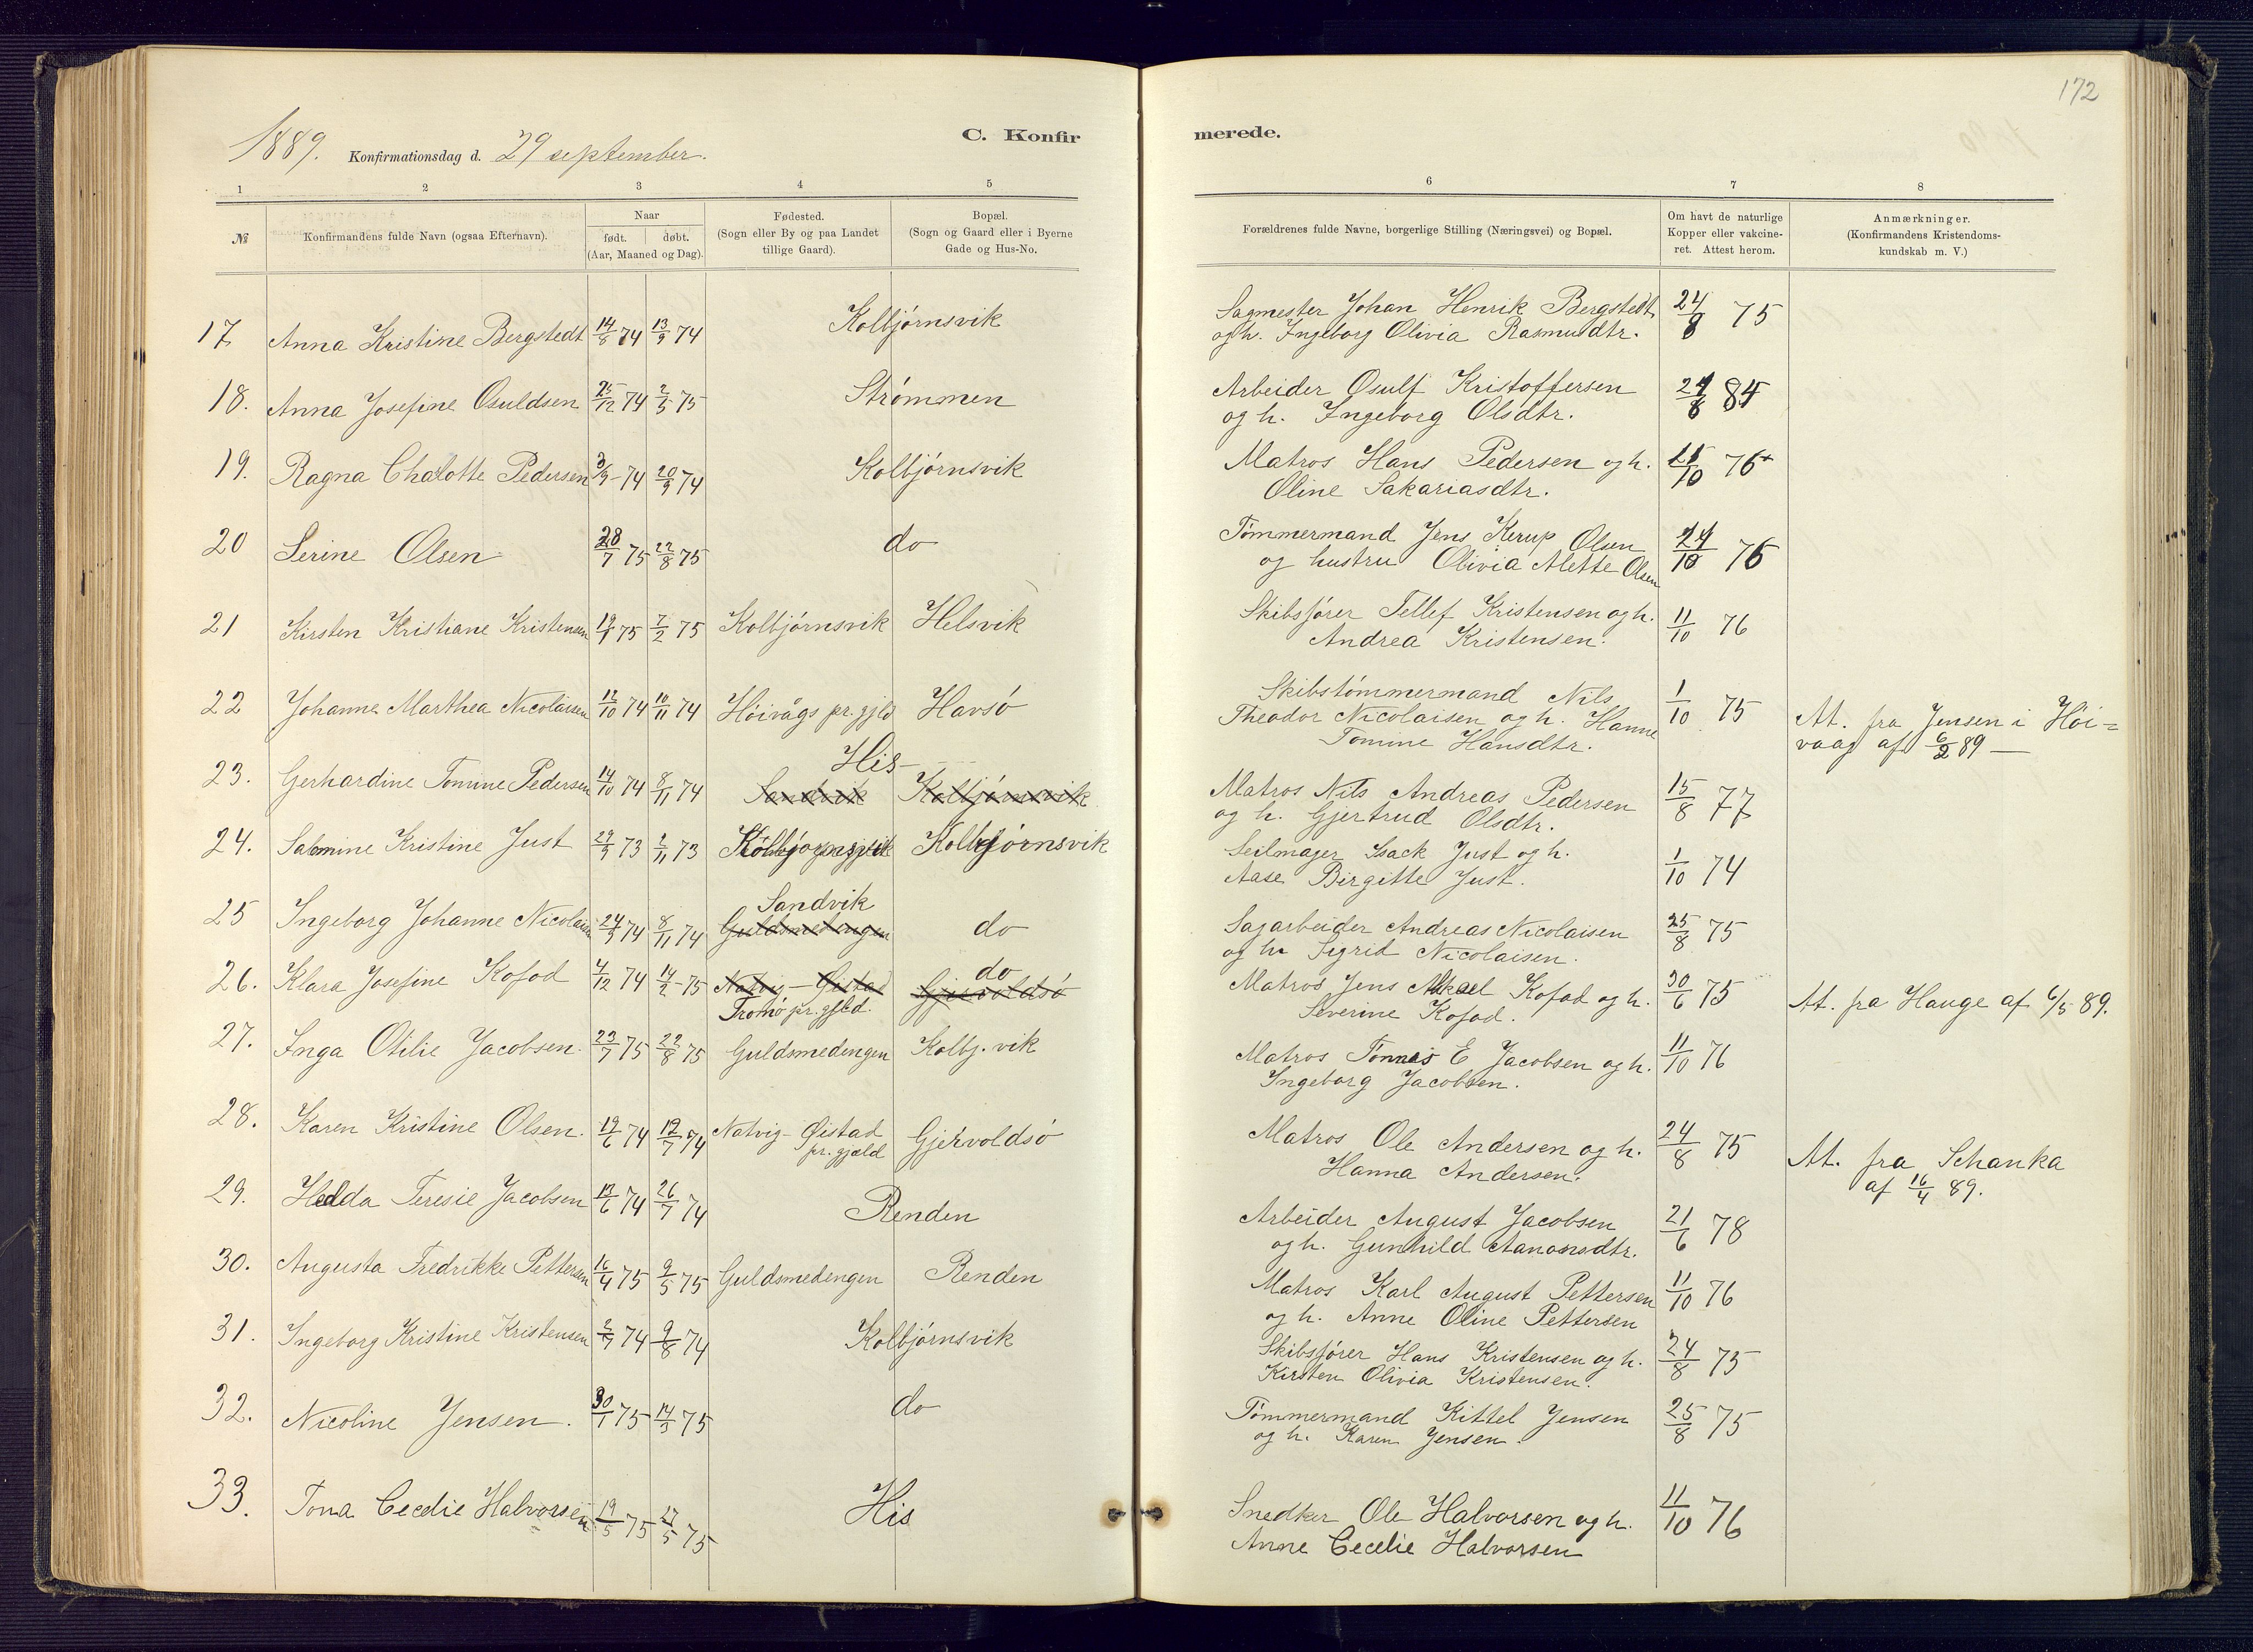 172
1889. Konfirmationsdag d. 29 september.
C. Konfirmerede.
1 2 3 4 5 6 7 8
№
Konfirmandens fulde Navn (ogsaa Efternavn).
Naar
født. døbt.
(Aar, Maaned og Dag).
Fødested.
(Sogn eller By og paa Landet
tillige Gaard).
Bopæl.
(Sogn og Gaard eller i Byerne
Gade og Hus-No.
Forældrenes fulde Navne, borgerlige Stilling (Næringsvei) og Bopæl.
Om havt de naturlige
Kopper eller vakcine-
ret. Attest herom.
Anmærkninger.
(Konfirmandens Kristendoms-
kundskab m. V.)
17 Anna Kristine Bergstedt 14/8 74 13/9 74 Kolbjórnsvik Sagmester Johan Henrik Bergstedt 24/8 75
og h. Ingeborg Olivia Rasmusdtr.
18. Anna Josefine Osuldsen 25/12 74 2/5 75 Strómmen Arbeider Osulf Kristoffersen 24/8 84
og h. Ingeborg Olsdtr.
19. Ragna Chalotte Pedersen 3/9 74 20/9 74 Kolbjórnsvik Matros Hans Pedersen og h. 10 76
Oline Sakariasdtr.
20 Serine Olsen 28/7 75 22/8 75 do Tómmermand Jens Kerup Olsen 24/10 76
og hustru Olivia Alette Olsen
21 Kirsten Kristiane Kristensen 19/1 75 7/2 75 Kolbjórnsvik Helsvik Skibsfórer Tellef Kristensen og h. 11/10 76
Andrea Kristensen.
22 Johanne Marthea Nicolaisen 12/10 74 10/11 74 Hóivågs pr. gjld Havsó Skibstómmermand Nils 1/10 75
Theodor Nicolaisen og h. Hanne
Tomine Hansdtr.
At. fra Jensen i Hói=
vaag af 6/2 89 —
23. Gerhardine Tomine Pedersen 14/10 74 8/11 74 His
Sandvik Kolbjórnsvik Matros Nils Andreas Pedersen 15/8 77
og h. Gjertrud Olsdtr.
24. Salomine Kristine Just 29/9 73 2/11 73 Kolbjórnsvik Kolbjórnsvik Seilmager Isack Just og h. 1/10 74
Aase Birgitte Just.
25 Ingeborg Johanne Nicolaisen 24/9 74 8/11 74 Sandvik
Guldsmedengen do Sagarbeider Andreas Nicolaisen 25/8 75
og h. Sigrid Nicolaisen.
26. Klara Josefine Kofod 4/12 74 14/2 75 Natvig — Óistad do
Gjervoldsó
Tromó pr. gjld. Matros Jens Mikael Kofod og h. 30/6 75
Severine Kofod.
At. fra Hauge af 6/5 89.
27. Inga Otilie Jacobsen. 23/7 75 22/8 75 Guldsmedengen Kolbj. vik Matros Tónnes E Jacobsen og h. 11/10 76
Ingeborg Jacobsen.
28. Karen Kristine Olsen. 19/6 74 12/7 74 Natvig - Øistad
pr. gjæld Gjervoldsó Matros Ole Andersen og h. 24/8 75
Hanna Andersen.
At. fra Schanka
af 16/4 89.
29. Hedda Teresie Jacobsen 6 74 26/7 74 Renden Arbeider August Jacobsen 21/6 78
og h. Gunhild Aanonsdtr.
30. Augusta Fredrikke Pettersen 16/4 75 9/5 75 Guldsmedengen Renden Matros Karl August Pettersen 11/10 76
og h. Anne Oline Pettersen
31. Ingeborg Kristine Kristensen 2/7 74 9/8 74 Kolbjórnsvik Skibsfórer Hans Kristensen og h. 24/8 75
Kirsten Olivia Kristensen.
32. Nicoline Jensen. 30/1 75 14/3 75 do Tómmermand Kittel Jensen 25/8 75
og h. Karen Jensen.
33. Tona Cecelie Halvorsen 19/5 75 27/5 75 His Snedker Ole Halvorsen og h. 11/10 76
Anne Cecelie Halvorsen